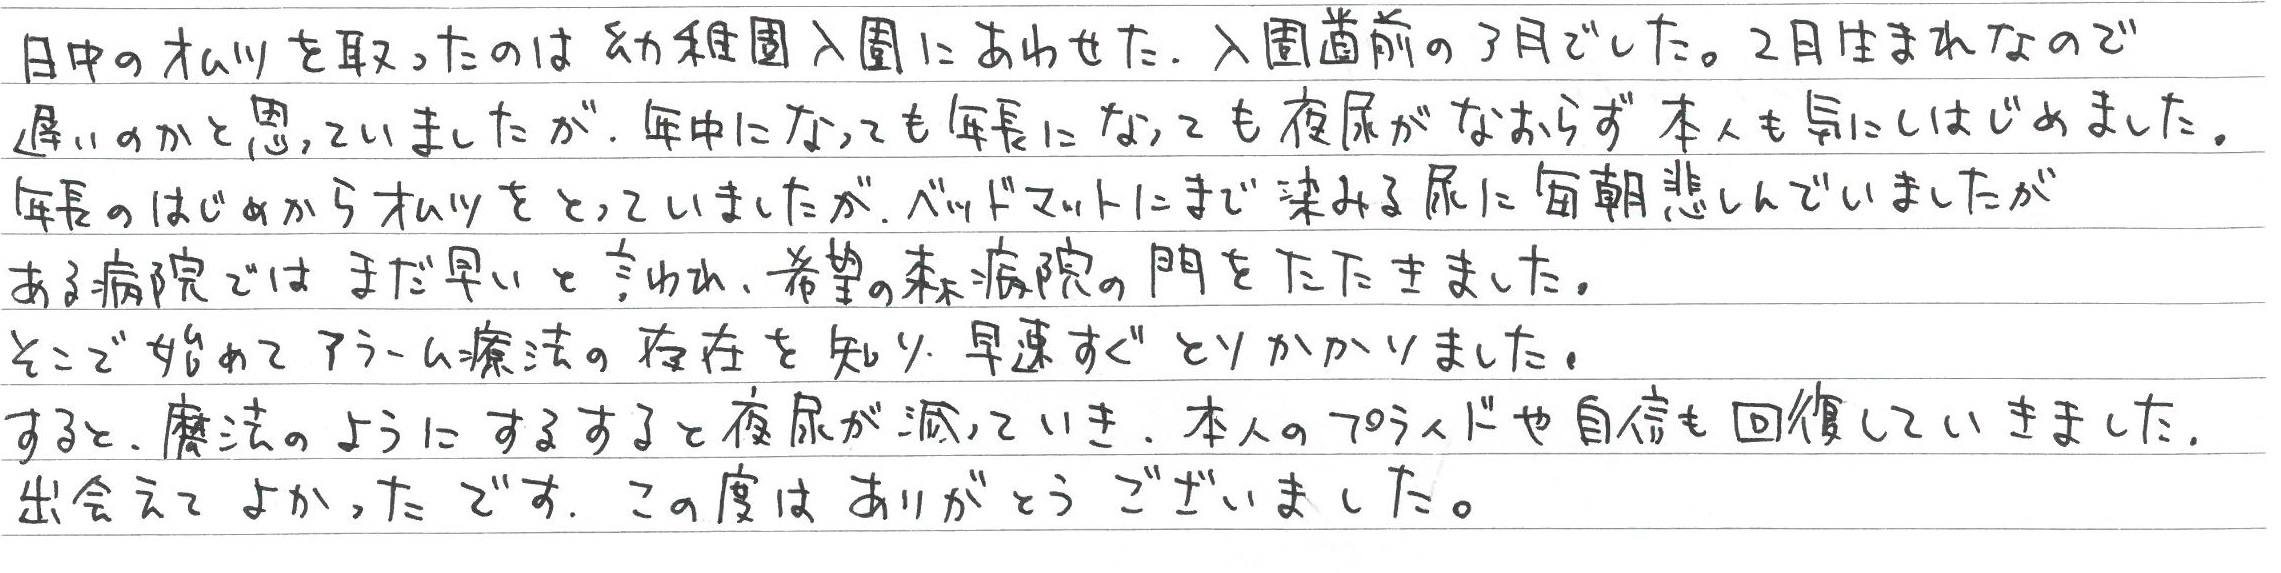 日中のオムツを取ったのは幼稚園入園にあわせた、入園直前の3月でした。2月生まれなので
遅いのかと思っていましたが、年中になっても年長になっても夜尿がなおらず本人も気にしはじめました。
年長のはじめからオムツをとっていましたが、ベッドマットにまで染みる尿に毎朝悲しんでいましたが
ある病院ではまだ早いと言われ、希望の森病院の門をたたきました。
そこで始めてアラーム療法の存在を知り、早速すぐとりかかりました。
すると、魔法のようにするすると夜尿が減っていき、本人のプライドや自信も回復していきました。
出会えてよかったです。この度はありがとうございました。